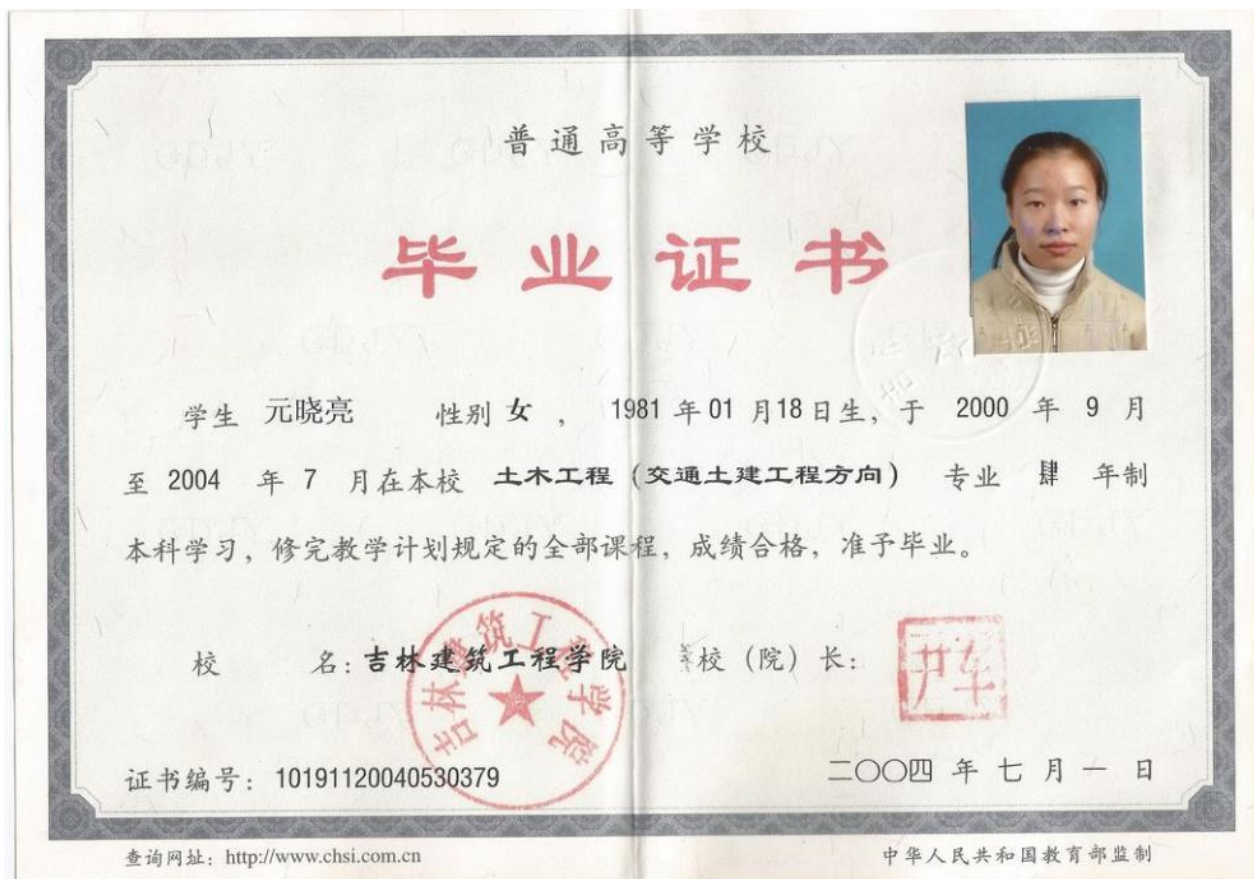 普通高等学校
毕业证书
学生 元晓亮 性别 女 ， 1981 年 01 月 18 日生，于 2000 年 9 月
至 2004 年 7 月在本校 土木工程（交通土建工程方向） 专业 肆 年制
本科学习，修完教学计划规定的全部课程，成绩合格，准予毕业。
校 名：吉林建筑工程学院 校（院）长：
吉林建筑工程学院
证书编号：10191120040530379 二〇〇四 年 七 月 一 日
查询网址：http://www.chsi.com.cn 中华人民共和国教育部监制